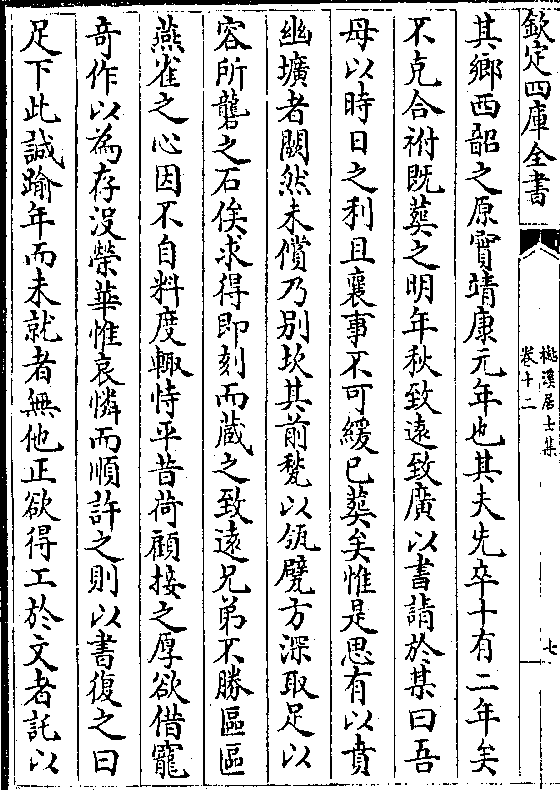 欽定四庫全書
檆溪居士集
卷十二
七
其鄉西韶之原實靖康元年也其夫先卒十有二年矣
不克合祔既葬之明年秋致遠致廣以書請於某曰吾
母以時日之利且襄事不可緩已葬矣惟是思有以賁
幽壙者闕然未償乃别坎其前甃以瓴甓方深取足以
容所礱之石俟求得即刻而藏之致遠兄弟不勝區區
燕雀之心因不自料度輙恃平昔荷顧接之厚欲借寵
奇作以為存沒榮華惟哀憐而順許之則以書復之曰
足下此誠踰年而未就者無他正欲得工於文者託以